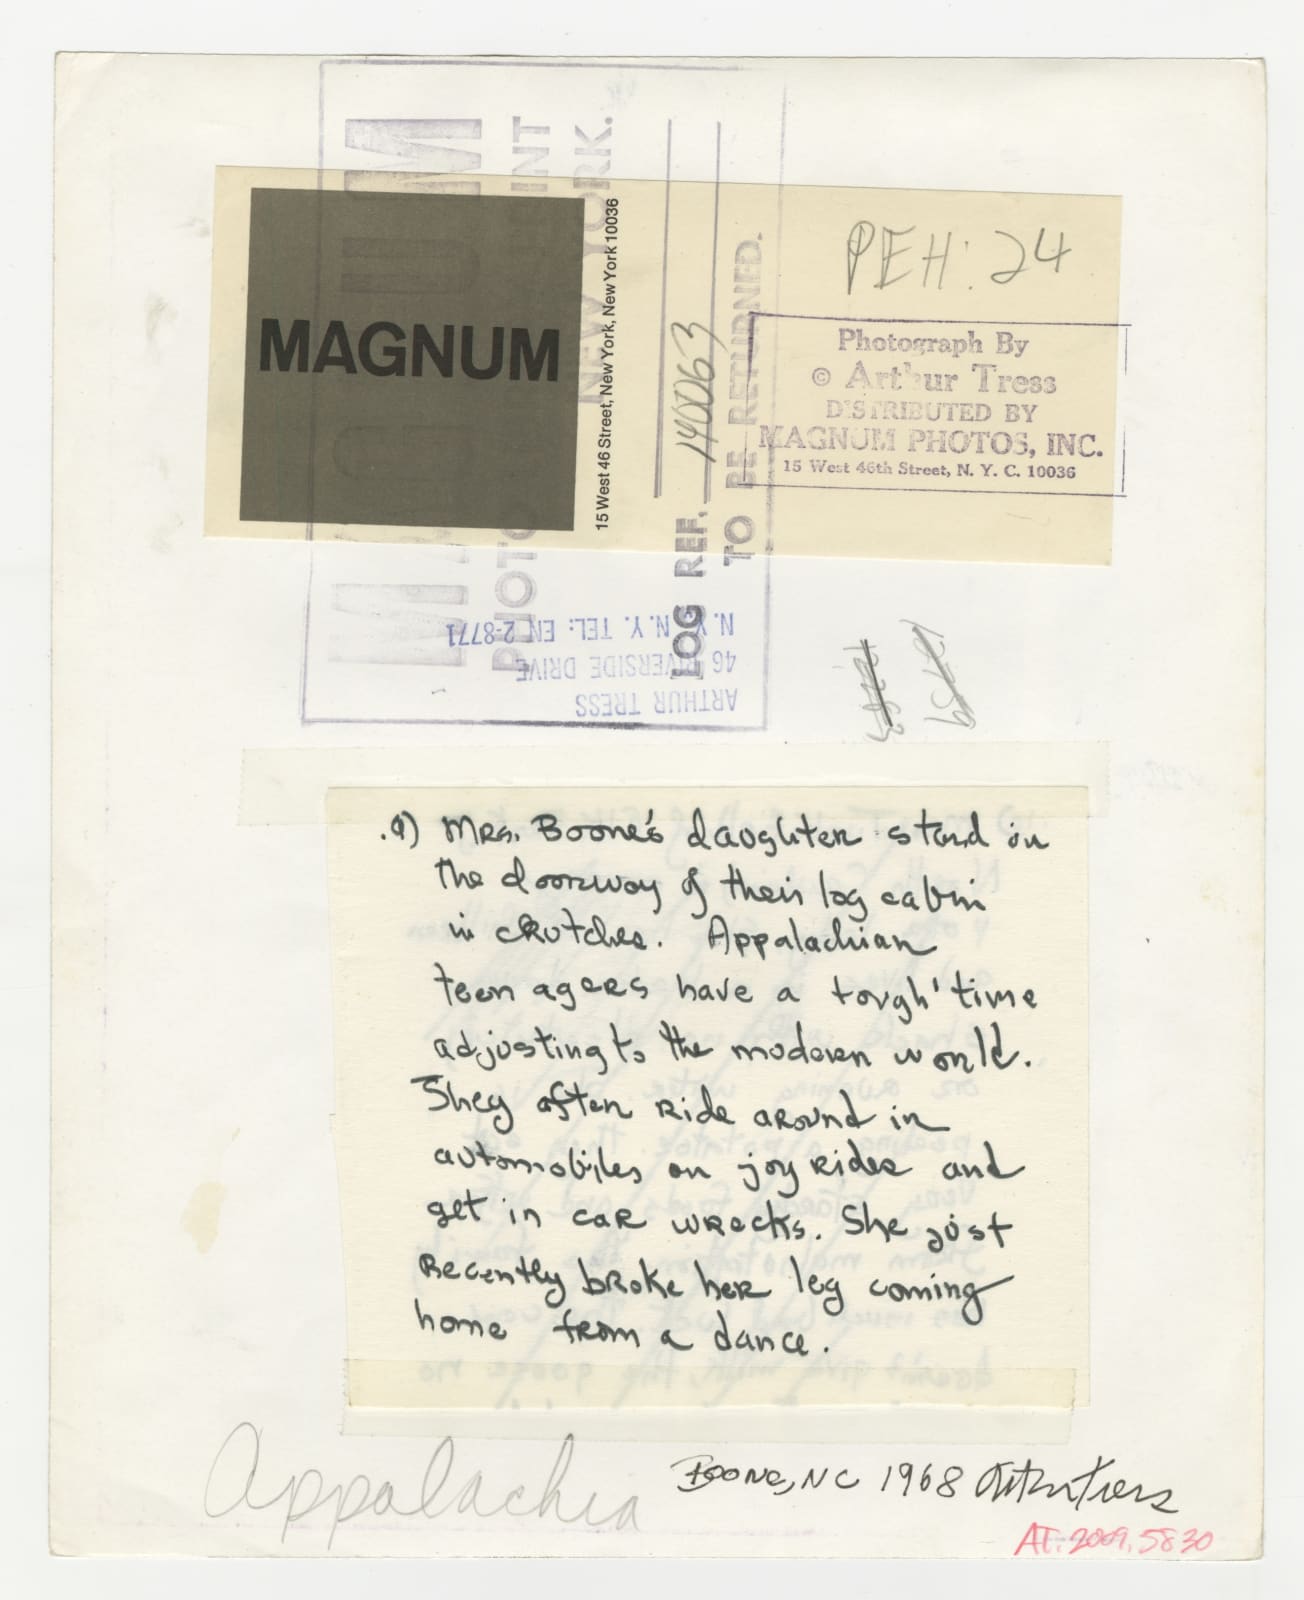 MAGNUM
PHOTO PRINT
NEW YORK.
LOG REF. 140063
TO BE RETURNED.
MAGNUM
15 West 46 Street, New York, New York 10036
PEH: 24
Photograph By
© Arthur Tress
DISTRIBUTED BY
MAGNUM PHOTOS, INC.
15 West 46th Street, N. Y. C. 10036
ARTHUR TRESS
46 RIVERSIDE DRIVE
N. Y. N. Y. TEL: EN 2-8771
.9) Mrs. Boone's daughter stand in
the doorway of their log cabin
in crutches. Appalachian
teen agers have a tough' time
adjusting to the modern world.
They often ride around in
automobiles on joy rides and
get in car wrecks. She just
recently broke her leg coming
home from a dance.
Appalachia
Boone, NC 1968 Arthur Tress
AT.2009.5830